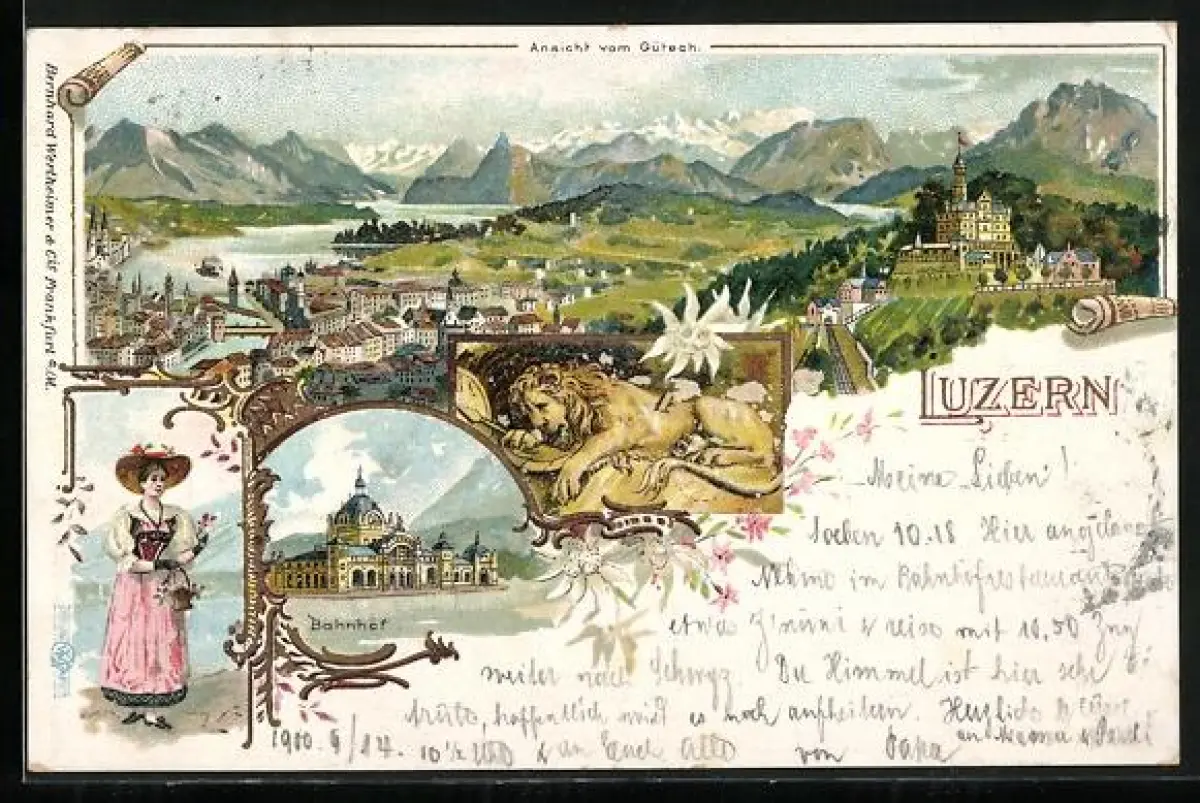 Ansicht vom Gütsch.
Bernhard Wertheimer & Cie Frankfurt a/M.
LUZERN
Bahnhof
Meine Lieben!
Soeben 10.18 Hier
Nehme im Bahnhofrestaurant
etwas Z'nüni & reise mit 10.50 Zug
weiter nach Schwyz. Der Himmel ist hier sehr
trübe, hoffentlich wird es noch aufheitern. Herzliche
an Mama &
1900. 9/14. 10½ Uhr & an Euch Alle von Papa